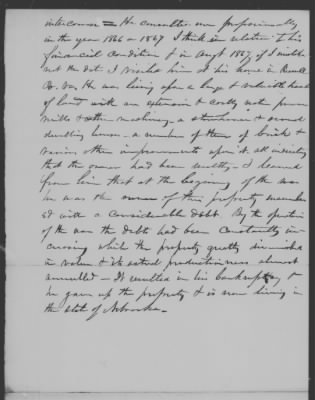 intercourse = He consulted me professionally
in the year 1866 or 1867 I think in relation to his
financial condition & in Augt 1867, if I mistake
not the date I visited him at his home in Russell
Co. Va. He was living upon a large & valuable tract
of land with an extensive & costly water power
mills & other machinery - a storehouse & several
dwelling houses - a number of them of brick &
various other improvements upon it all indicating
that the owner had been wealthy - I learned
from him that at the beginning of the war
he was the owner of this property incumber-
ed with a considerable debt. By the operation
of the war the debt had been constantly in-
creasing while the property greatly diminished
in value & its actual productiveness almost
annulled - It resulted in his bankruptcy &
he gave up the property & is now living in
the state of Nebraska.